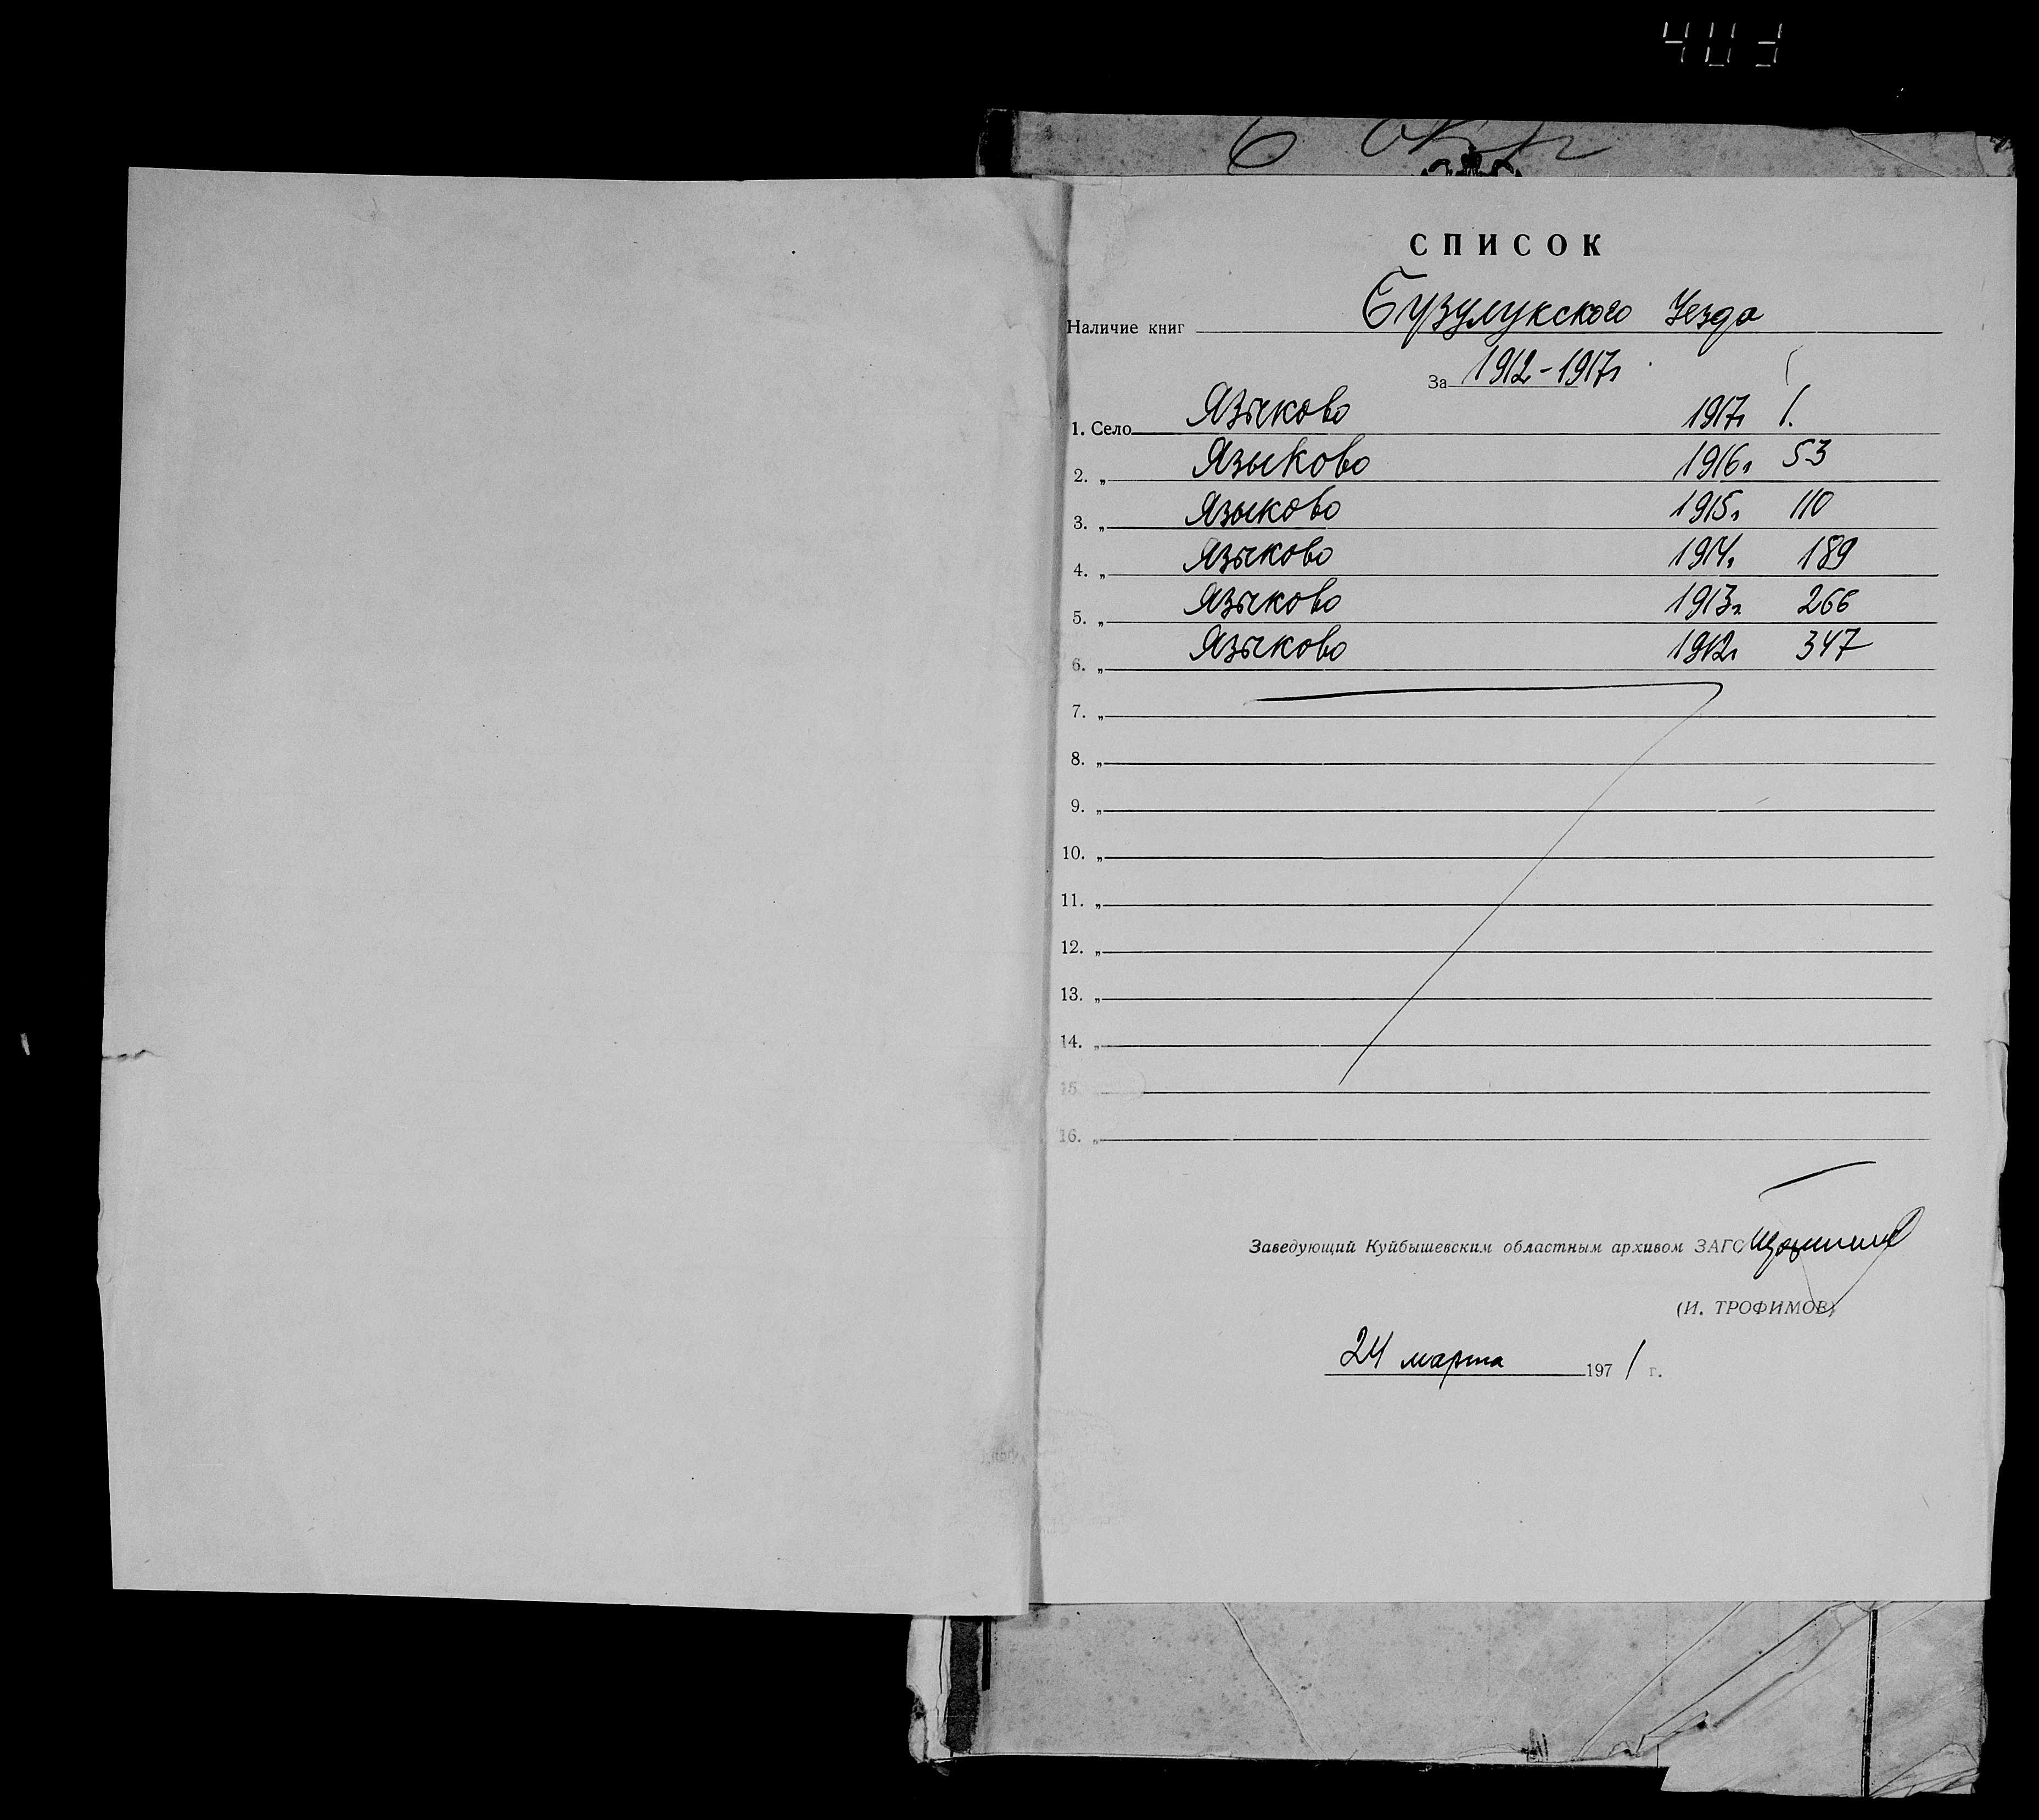 403
СПИСОК
Наличие книг Бузулукского Уезда
За 1912-1917г
1. Село Языково 1917г 1.
2. „ Языково 1916г 53
3. „ Языково 1915г 110
4. „ Языково 1914г 189
5. „ Языково 1913г 266
6. „ Языково 1912г 347
7. „
8. „
9. „
10. „
11. „
12. „
13. „
14. „
15.
16. „
Заведующий Куйбышевским областным архивом ЗАГС
(И. ТРОФИМОВ)
24 марта 1971 г.